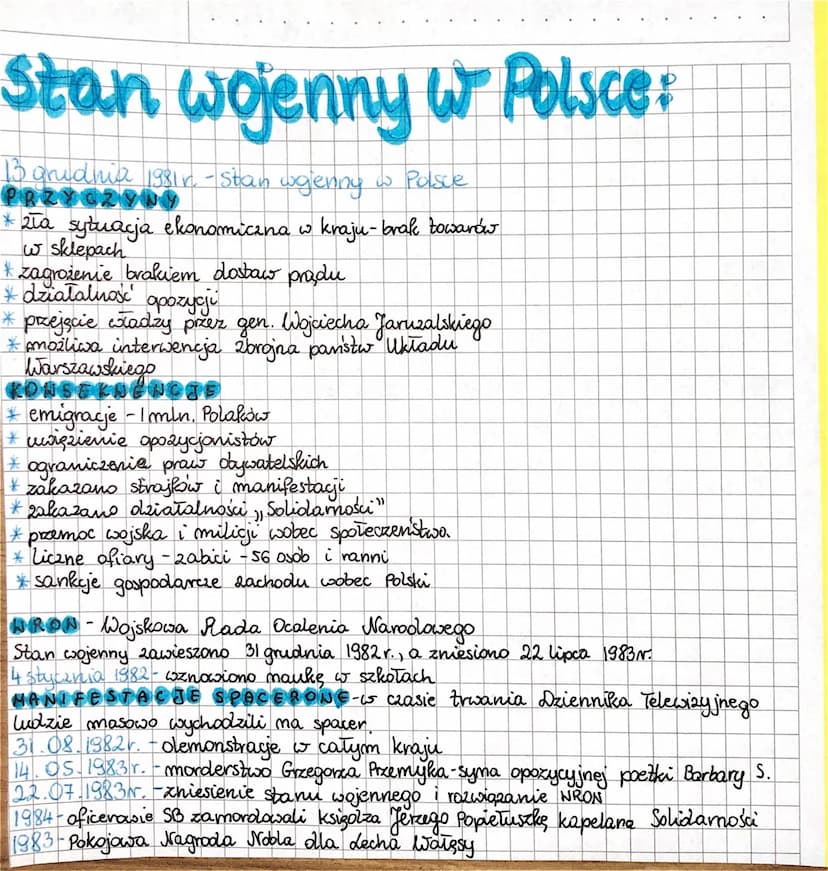 Stan wojenny w Polsce:
13 grudnia 1981r. - Stan wojenny w Polsce
PRZYCZYNY
* zła sytuacja ekonomiczna w kraju - brak towarów
w sklepach
* zagrożenie brakiem dostaw prądu
* działalność opozycji
* przejęcie władzy przez gen. Wojciecha Jaruzalskiego
* możliwa interwencja zbrojna państw Układu
Warszawskiego
KONSEKWENCJE
* emigracje - 1 mln. Polaków
* uwięzienie opozycjonistów
* ograniczenia praw obywatelskich
* zakazano strajków i manifestacji
* zakazano działalności „Solidarności”
* przemoc wojska i milicji wobec społeczeństwa
* liczne ofiary - zabici - 56 osób i ranni
* sankcje gospodarcze zachodu wobec Polski
WRON - Wojskowa Rada Ocalenia Narodowego
Stan wojenny zawieszono 31 grudnia 1982r., a zniesiono 22 lipca 1983r.
4 stycznia 1982 - wznowiono naukę w szkołach
MANIFESTACJE SPACEROWE - w czasie trwania Dziennika Telewizyjnego
ludzie masowo wychodzili na spacer.
31.08.1982r. - demonstracje w całym kraju
14.05.1983r. - morderstwo Grzegorza Przemyka - syna opozycyjnej poetki Barbary S.
22.07.1983r. - zniesienie stanu wojennego i rozwiązanie WRON
1984 - oficerowie SB zamordowali księdza Jerzego Popiełuszkę kapelana Solidarności
1983 - Pokojowa Nagroda Nobla dla Lecha Wałęsy